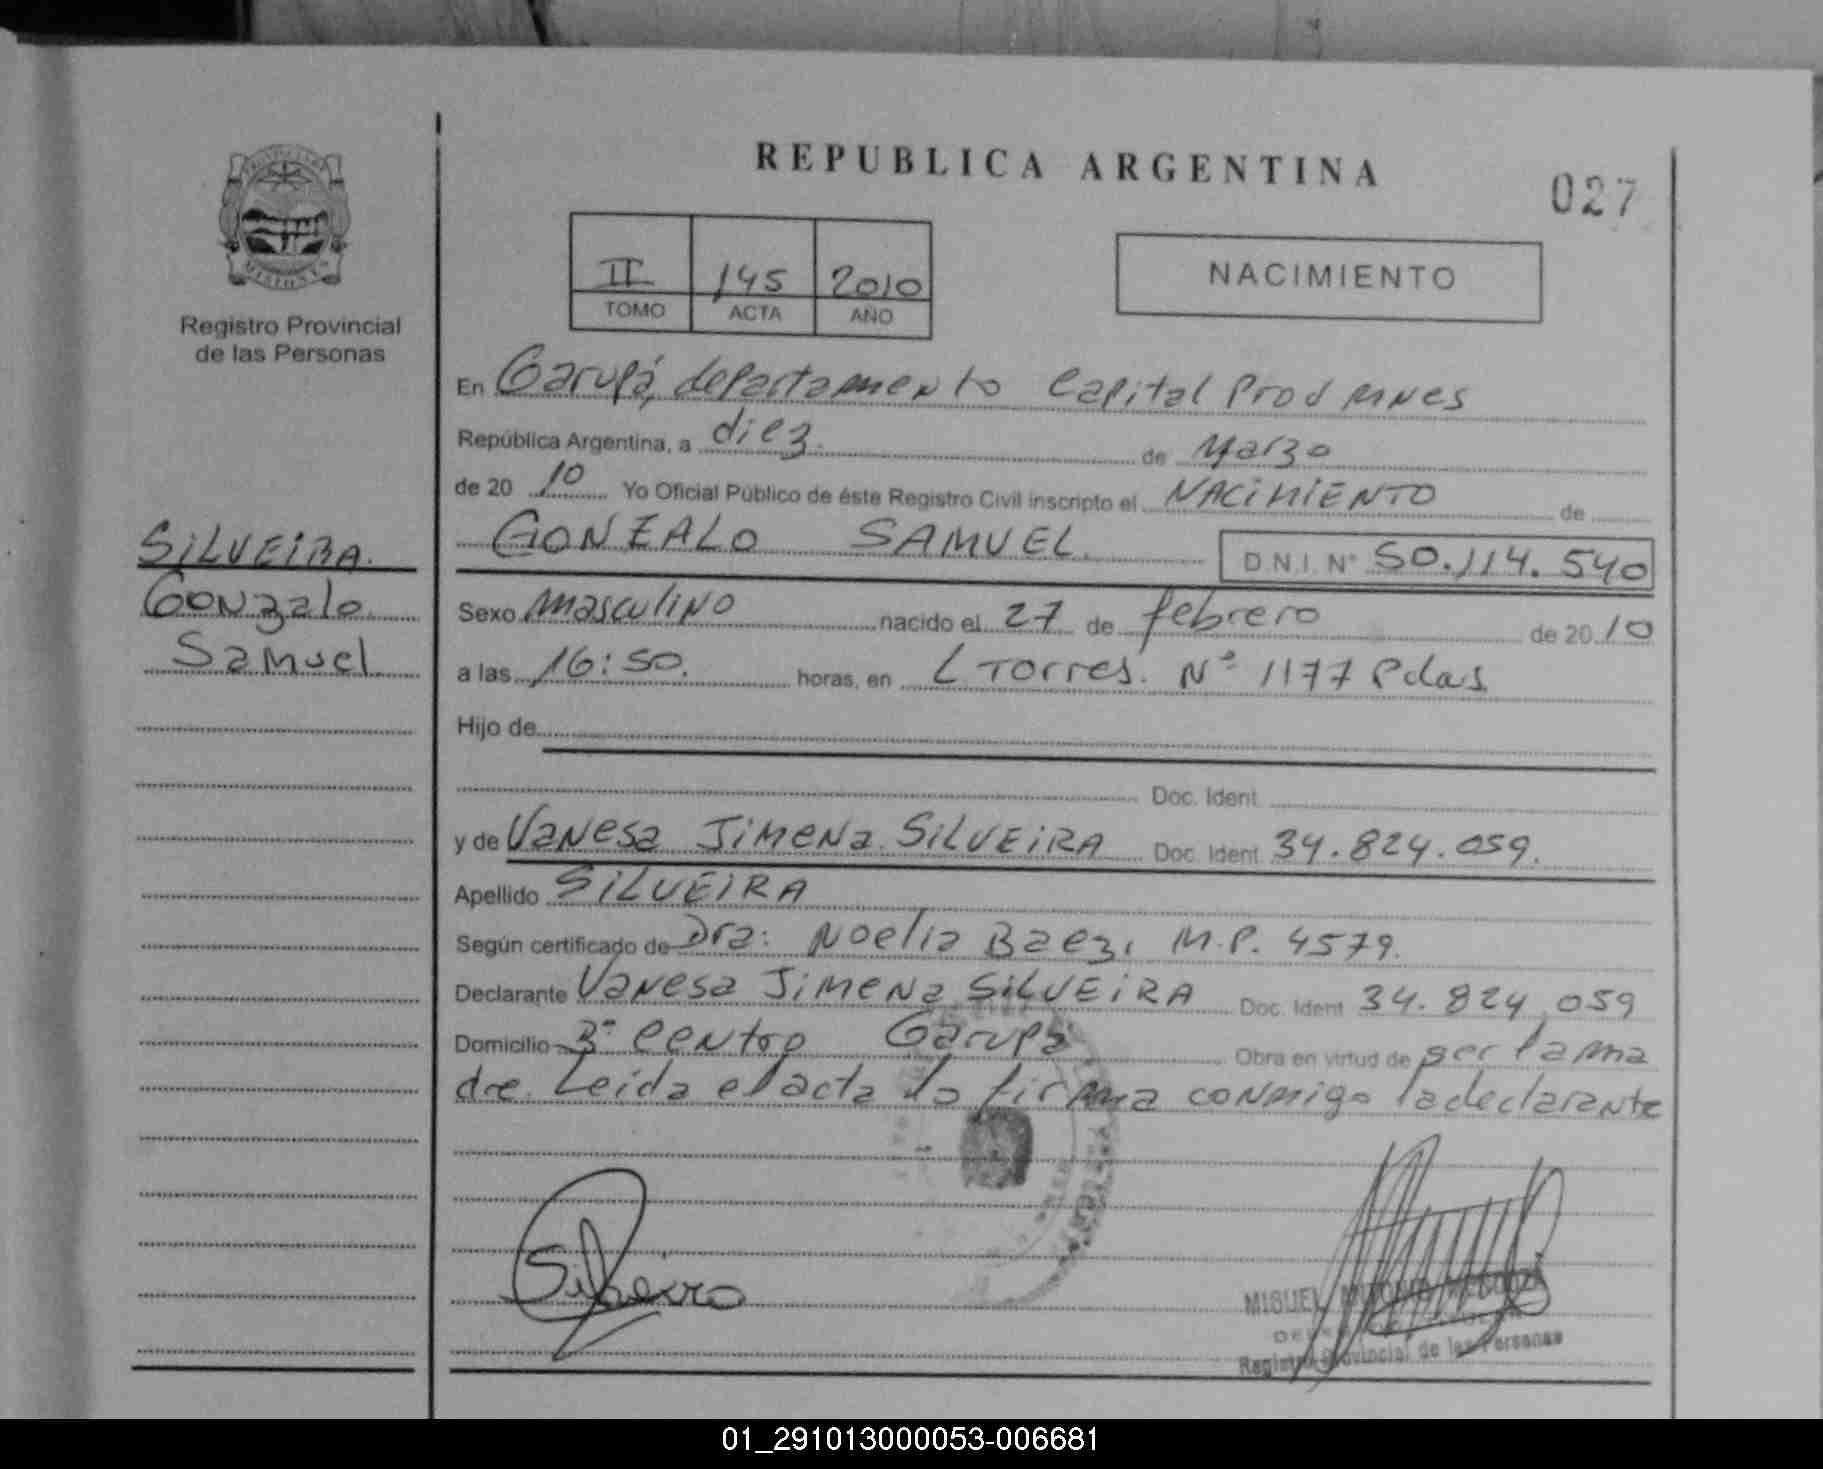 REPUBLICA ARGENTINA
027
II 145 2010
TOMO ACTA AÑO
NACIMIENTO
PROVINCIA
MISIONES
Registro Provincial
de las Personas
SILVEIRA.
Gonzalo
Samuel
En Garupá, departamento Capital Prod mnes
República Argentina, a diez. de Marzo
de 20 10 Yo Oficial Público de éste Registro Civil inscripto el NACIMIENTO de
GONZALO SAMUEL. D.N.I. N° 50.114.540
Sexo masculino nacido el 27 de febrero de 20 10
a las 16:50. horas, en L Torres. N° 1177 Pdas
Hijo de
Doc. Ident.
y de Vanesa Jimena SILVEIRA Doc. Ident. 34.824.059.
Apellido SILVEIRA
Según certificado de Dra: Noelia Baez, M.P. 4579.
Declarante Vanesa Jimena SILVEIRA Doc. Ident 34.824.059
Domicilio 3° centro Garupá Obra en virtud de ser la ma
dre. Leida el acta la firma conmigo la declarante
Silveira
MIGUEL
Registro Provincial de las Personas
01_291013000053-006681